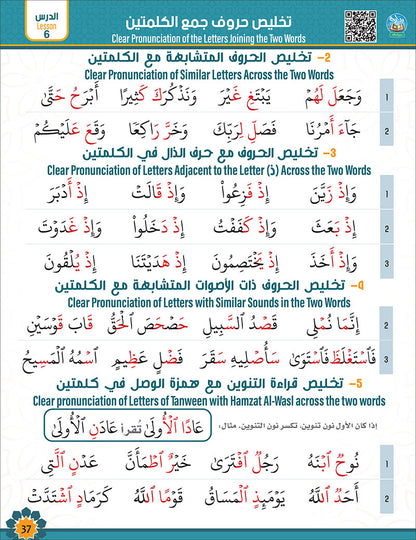 الدرس
Lesson
6
تخليص حروف جمع الكلمتين
Clear Pronunciation of the Letters Joining the Two Words
2- تخليص الحروف المتشابهة مع الكلمتين
Clear Pronunciation of Similar Letters Across the Two Words
وَجَعَلَ لَهُمْ يَبْتَغِ غَيْرَ وَنَذْكُرَكَ كَثِيرًا أَبْرَحُ حَتَّىٰ 1
جَآءَ أَمْرُنَا فَصَلِّ لِرَبِّكَ وَخَرَّ رَاكِعًا وَقَعَ عَلَيْكُمْ 2
3- تخليص الحروف مع حرف الذال في الكلمتين
Clear Pronunciation of Letters Adjacent to the Letter (ذ) Across the Two Words
وَإِذْ زَيَّنَ إِذْ فَزِعُوا۟ وَإِذْ قَالَتْ إِذْ أَدْبَرَ 1
إِذْ بَعَثَ وَإِذْ كَفَفْتُ إِذْ دَخَلُوا۟ وَإِذْ غَدَوْتَ 2
وَإِذْ أَخَذَ إِذْ يَخْتَصِمُونَ إِذْ هَدَيْتَنَا إِذْ يُلْقُونَ 3
4- تخليص الحروف ذات الأصوات المتشابهة مع الكلمتين
Clear Pronunciation of Letters with Similar Sounds in the Two Words
إِنَّمَا نُمْلِى قَصْدُ ٱلسَّبِيلِ حَصْحَصَ ٱلْحَقُّ قَابَ قَوْسَيْنِ 2
فَٱسْتَغْلَظَ فَٱسْتَوَىٰ سَأُصْلِيهِ سَقَرَ فَضْلٍ عَظِيمٍ ٱسْمُهُ ٱلْمَسِيحُ 3
5- تخليص قراءة التنوين مع همزة الوصل في كلمتين
Clear pronunciation of Letters of Tanween with Hamzat Al-Wasl across the two words
إذا كان الأول نون تنوين، تكسر نون التنوين. مثال: عَادًا ٱلْأُولَىٰ تُقرأ عَادَنِ ٱلْأُولَىٰ
نُوحٌ ٱبْنَهُ رَجُلٌ ٱفْتَرَىٰ خَيْرٌ ٱطْمَأَنَّ عَدْنٍ ٱلَّتِى 1
أَحَدٌ ٱللَّهُ يَوْمَئِذٍ ٱلْمَسَاقُ قَوْمًا ٱللَّهُ كَرَمَادٍ ٱشْتَدَّتْ 2
37